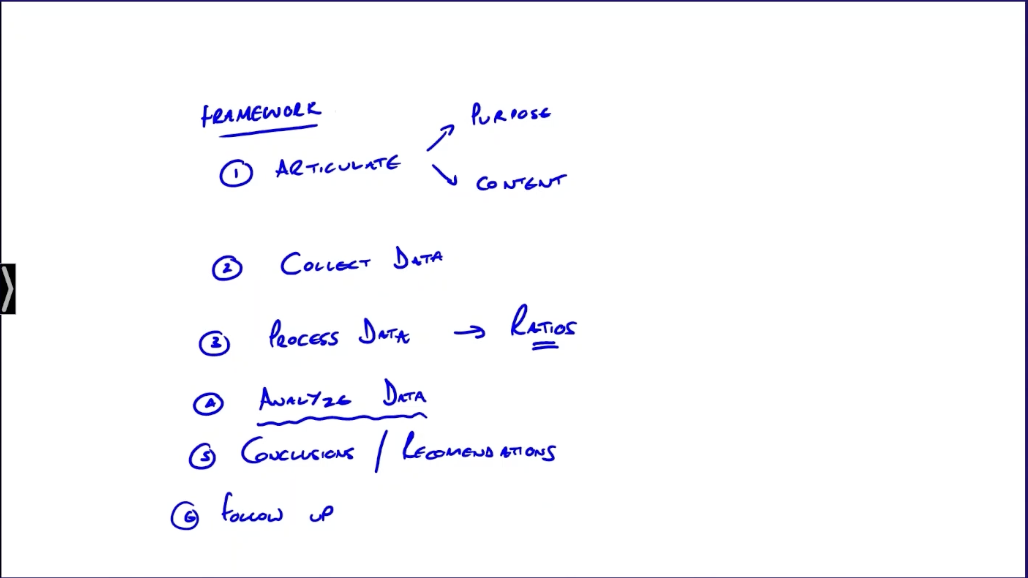 FRAMEWORK
① ARTICULATE
PURPOSE
CONTENT
② COLLECT DATA
③ PROCESS DATA → RATIOS
④ ANALYZE DATA
⑤ CONCLUSIONS / RECOMENDATIONS
⑥ FOLLOW UP